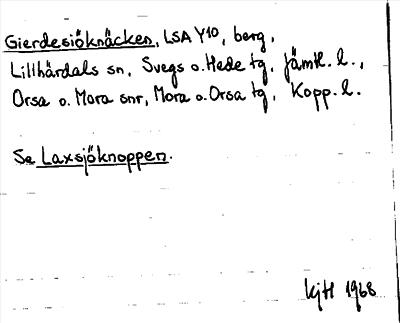 Gierdesiöknäcken, LSA Y10, berg,
Lillhärdals sn, Svegs o. Hede tg, Jämtl. l.,
Orsa o. Mora snr, Mora o. Orsa tg, Kopp. l.
Se Laxsjöknoppen.
KjH 1968